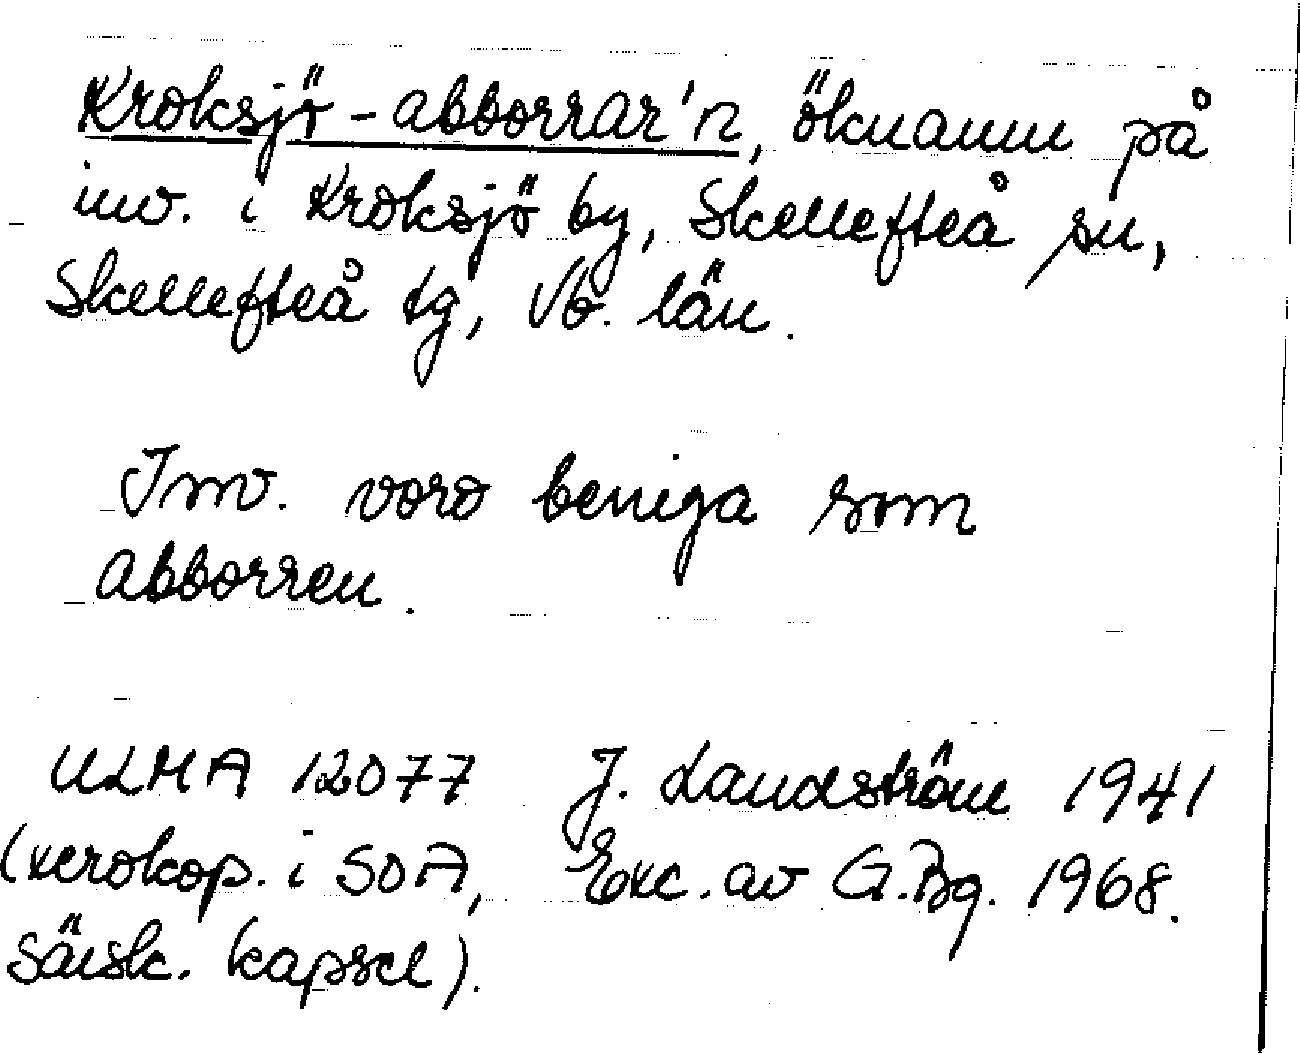 Kroksjö-abborrar'n, öknamn på
inv. i Kroksjö by, Skellefteå sn,
Skellefteå tg, Vb. län.
Inv. voro beniga som
abborren.
ULMA 12077 J. Landström 1941
(xerokop. i SOA, Exc. av G.Bg. 1968.
särsk. kapsel).